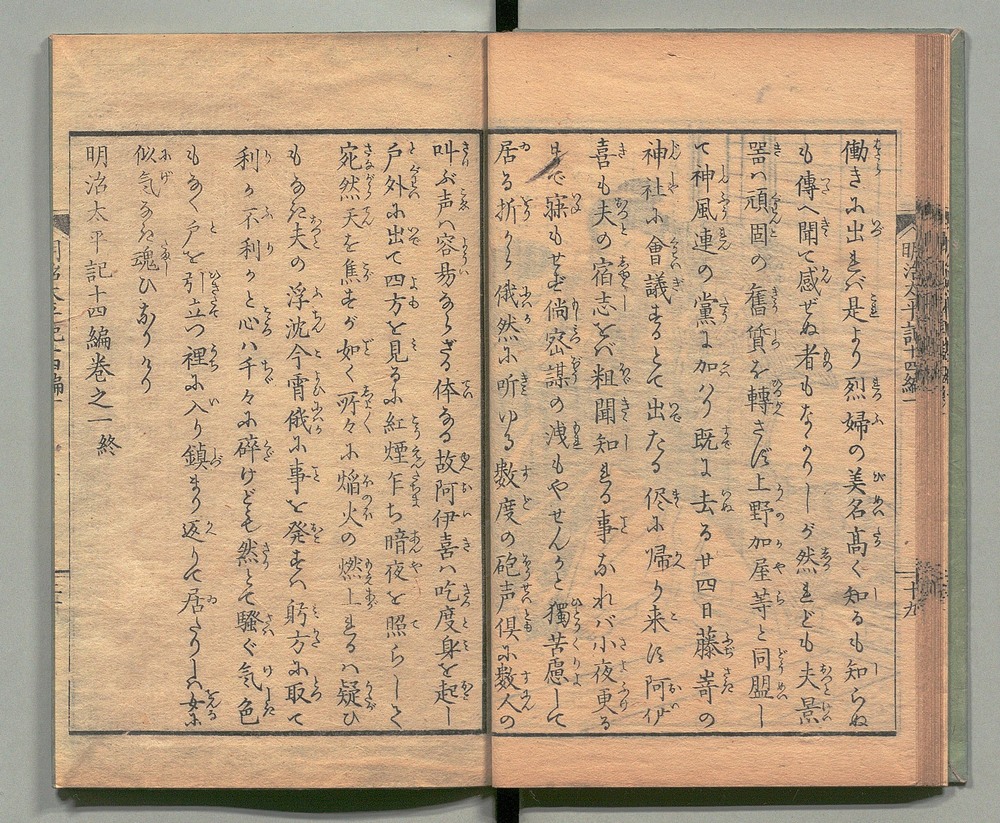 働きに出れば是より烈婦の美名高く知るも知らぬ
も傳へ聞て感ぜぬ者もなかりしが然れども夫景
器は頑固の舊貨を轉さず上野加屋等と同盟し
て神風連の黨に加はり既に去る廿四日藤嵜の
神社に會議するとて出たる侭に帰り来ず阿伊
喜も夫の宿志をば粗聞知れる事なれバ小夜更る
まで寐もせず倘密謀の洩もやせんかと獨苦慮して
居る折から俄然に听ゆる数度の砲声倶に数人の
叫ぶ声は容易ならざる体なる故阿伊喜は吃度身を起し
戸外に出て四方を見るに紅煙乍ち暗夜を照らして
宛然天を焦すが如く所々に焔火の燃上るは疑ひ
もなき夫の浮沈今宵俄に事を発すは躬方に取て
利か不利かと心ハ千々に碎けども然とて騒ぐ気色
もなく戸を引立つ裡に入り鎮まり返りて居たりしハ女に
似気なき魂ひなりけり
明治太平記十四編巻之一終
明治太平記十四編一